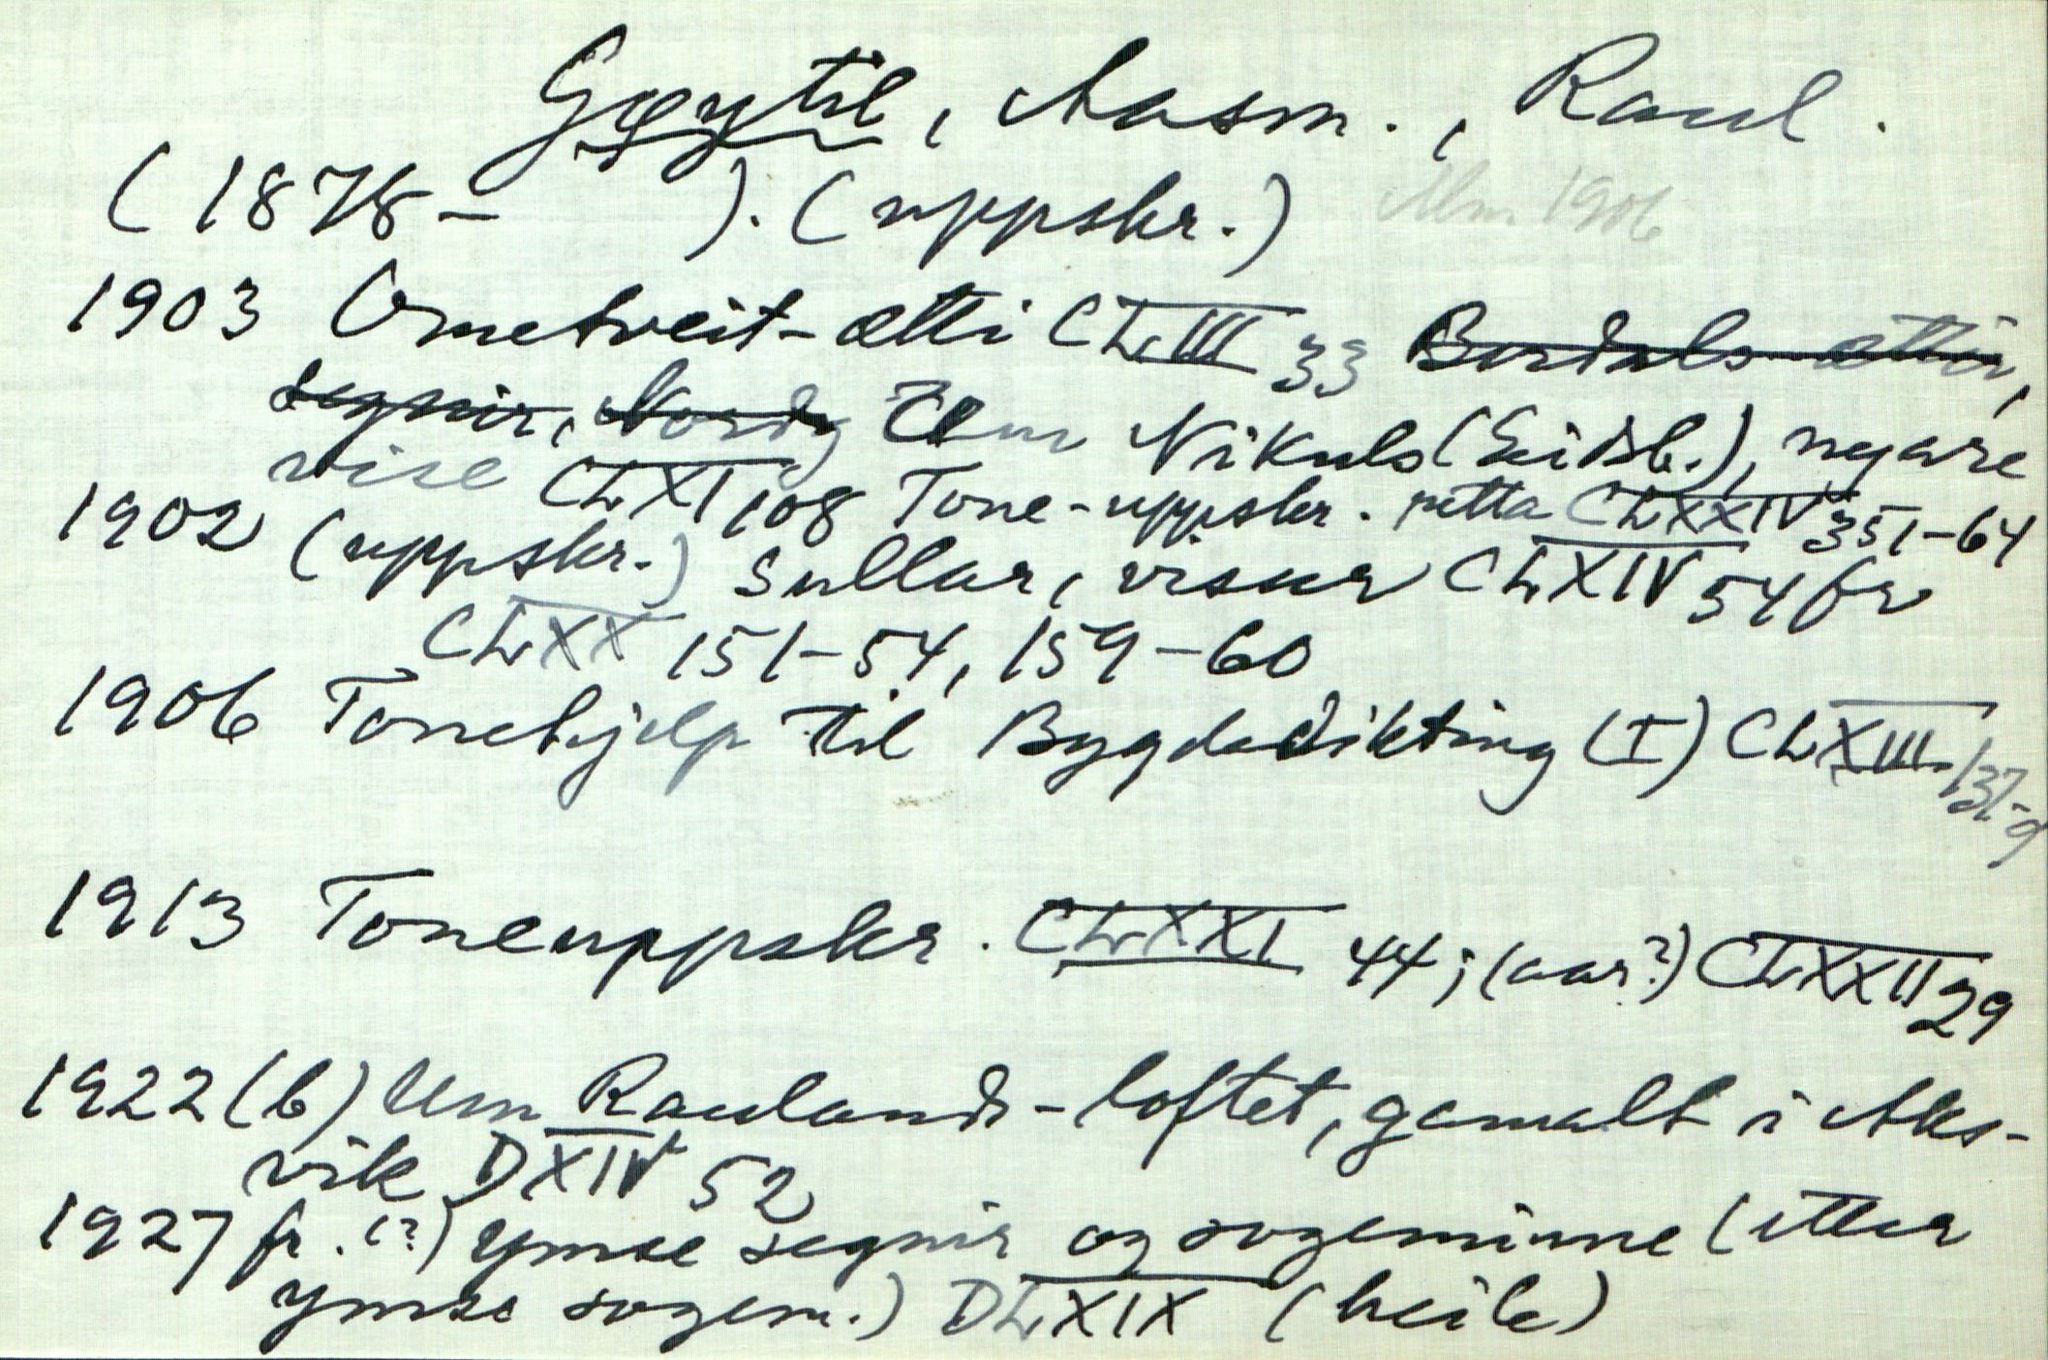 Gøytil, Aasm., Raul.
(1878- ). (uppskr.) Um 1906
1903 Ormetveit-ætti CLIII 33 Bordals-ættir,
segnir, Um Nikuls (Eidsb.), nyare
vise CLXI 108 Tone-uppskr. retta CLXXIV 351-64
1902 (uppskr.) Sullar, visur CLXIV 54 fr
CLXX 151-54, 159-60
1906 Tonehjelp til Bygdedikting (I) CLXIII 137-9
1913 Toneuppskr. CLXXI 44; (aar?) CLXXII 29
1922 (b) Um Raulands-loftet, gamalt i Aks-
vik DXIV 52
1927 fr. (?) Ymse segnir og sogeminne (etter
ymse sogem.) DLXIX (heile)